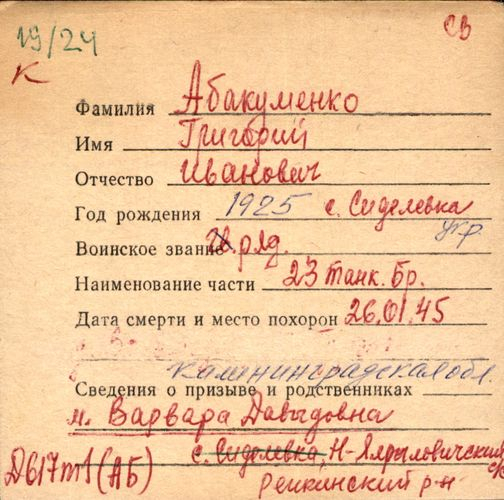 19/24
СВ
К
Фамилия Абакуменко
Имя Григорий
Отчество Иванович
Год рождения 1925 с. Сиделевка
укр.
Воинское звание ряд.
Наименование части 23 танк. бр.
Дата смерти и место похорон 26.01.45
Калининградская обл
Сведения о призыве и родственниках
м. Варвара Давыдовна
с. Сиделевка, Н-
Д617т1(АБ)
р-н